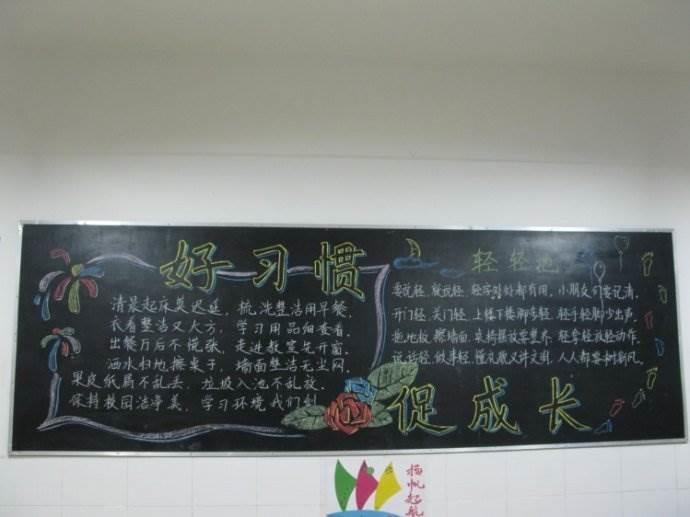 好习惯
清晨起床莫迟延，梳洗整洁用早餐，
衣着整洁又大方，学习用品细查看，
出餐厅后不慌张，走进教室先开窗，
洒水扫地擦桌子，墙面整洁无尘网，
果皮纸屑不乱丢，垃圾入池不乱放，
保持校园洁净美，学习环境我们创
轻轻地
要说轻，就说轻，轻字好处都有用，小朋友们要记清，
开门轻，关门轻，上楼下楼脚步轻，轻手轻脚少出声，
拖地板，擦墙面，桌椅摆放要整齐，轻拿轻放轻动作，
说话轻，做事轻，懂礼貌又讲文明，人人都要树新风。
促成长
扬帆起航